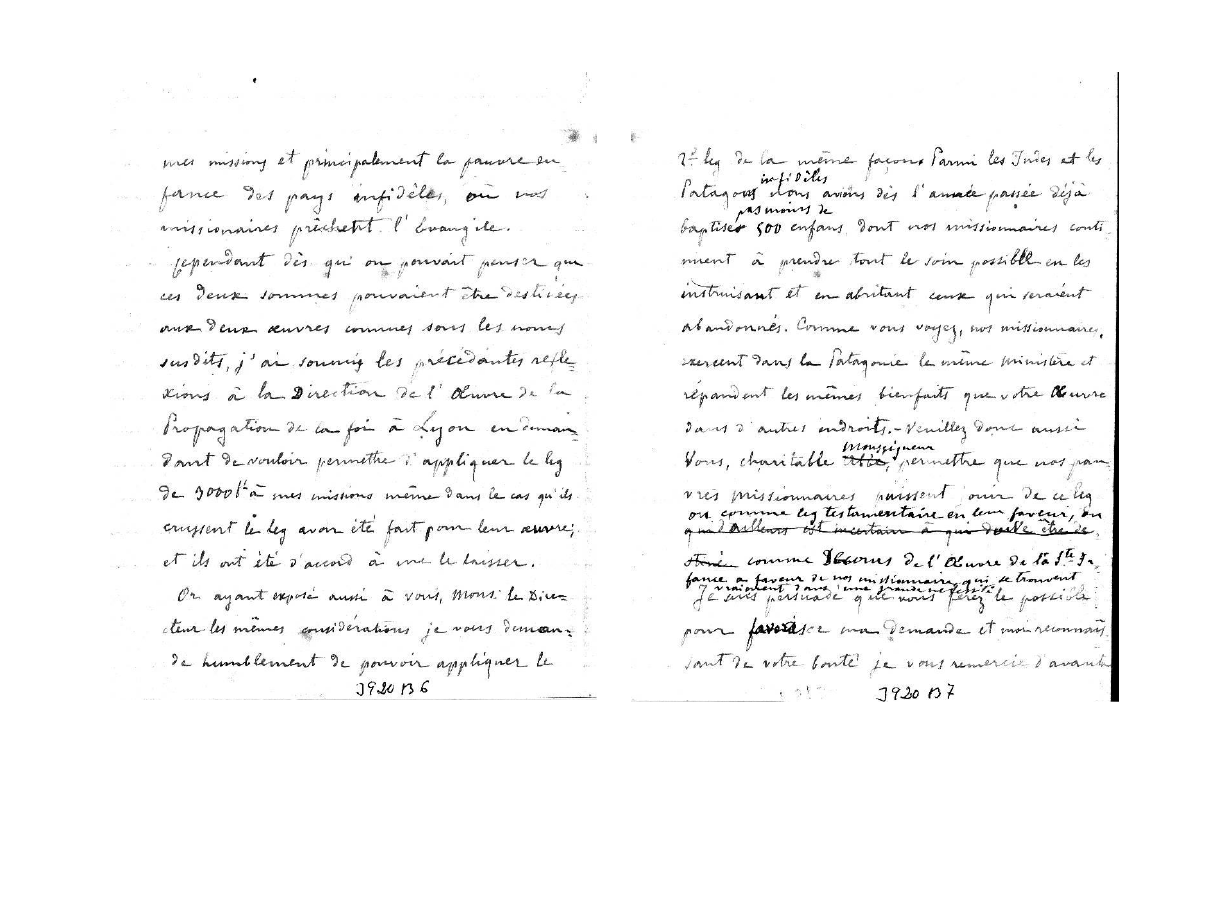 mes missions et principalement la pauvre en
fance des pays infidèles, où nos
missionaires prêchent l'Evangile.
Cependant dès qu'on pouvait penser que
ces deux sommes pouvaient être destinées
aux deux œuvres connues sous les noms
susdits, j'ai soumis les précédantes refle=
xions à la Direction de l'Œuvre de la
Propagation de la foi à Lyon en deman=
dant de vouloir permettre d'appliquer le leg
de 3000 à mes missions même dans le cas qu'ils
crussent le leg avoir été fait pour leur œuvre;
et ils ont été d'accord à me le laisser.
Or ayant exposé aussi à vous, Mons. le Dire=
cteur les mêmes considérations je vous deman=
de humblement de pouvoir appliquer le
J920 B6
2d leg de la même façon. Parmi les Indes et les
infidèles
Patagons nous avions dès l'année passée déjà
pas moins de
baptiser 500 enfans dont nos missionnaires conti
nuent à prendre tout le soin possible en les
instruisant et en abritant ceux qui seraient
abandonnés. Comme vous voyez, nos missionnaires,
exercent dans la Patagonie le même ministère et
répandent les mêmes bienfaits que votre Œuvre
dans d'autres endroits. - Veuillez donc aussi
Monsigneur
Vous, charitable Abbé, permettre que nos pau
vres missionnaires puissent jouir de ce leg
ou comme leg testamentaire en leur faveur, ou
qui d'ailleurs est incertain à qui doive être de
stinée comme secours de l'Œuvre de la Ste En
fance a faveur de nos missionnaires qui se trouvent
vraiement dans une grande nécessité
Je suis persuadé que vous ferez le possible
pour ma demande et moi reconnais
sant de votre bonté je vous remercie d'avance
J920 B7